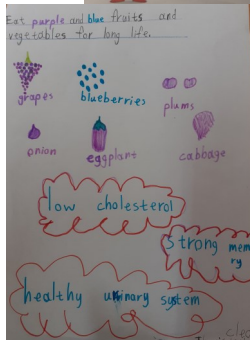 Eat purple and blue fruits and
vegetables for long life.
grapes
blueberries
plums
onion
eggplant
cabbage
low cholesterol
strong mem
ry
healthy urinary system